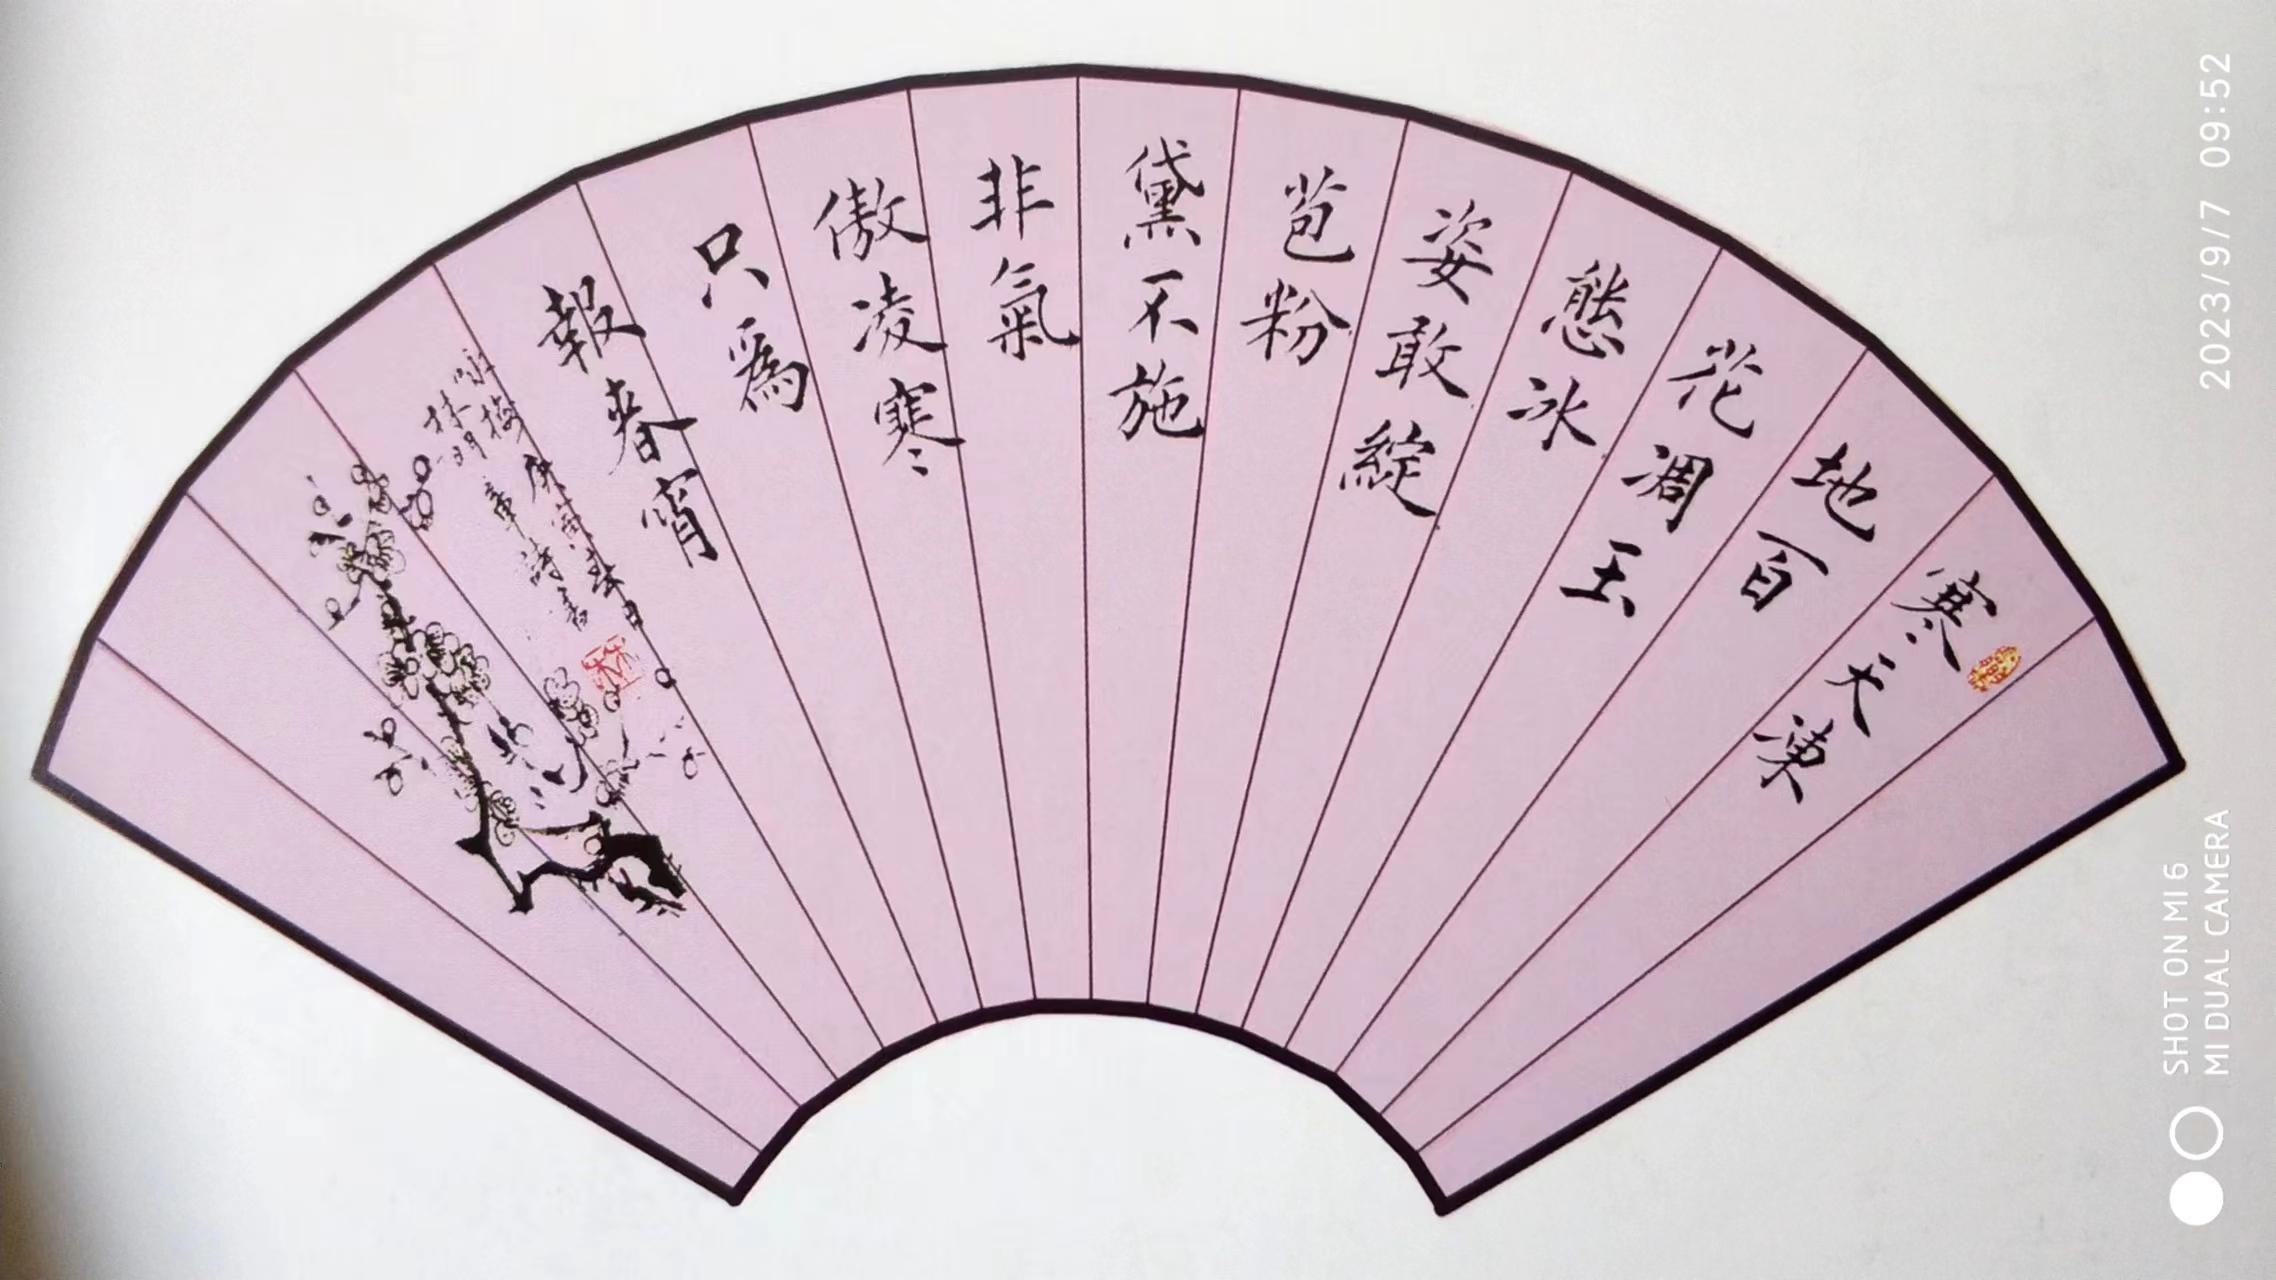 寒天凍
地百
花凋玉
態冰
姿敢綻
苞粉
黛不施
非氣
傲凌寒
只為
報春宵
詠梅 庚寅春日
林明 章詩書
2023/9/7 09:52
SHOT ON MI 6
MI DUAL CAMERA